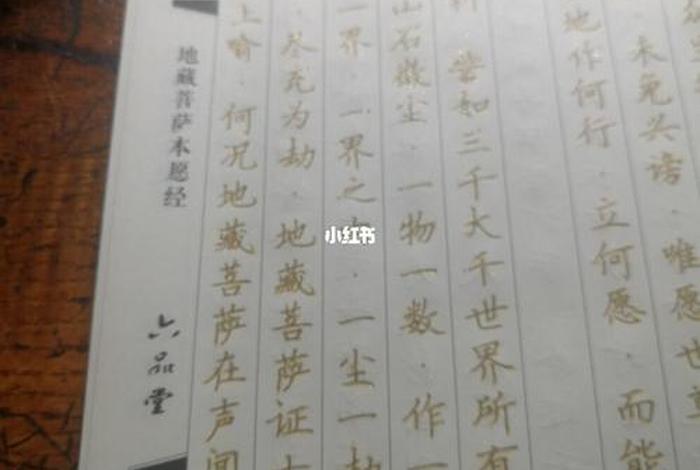 未免兴谤·唯愿世
地作何行·立何愿·而能
譬如三千大千世界所有
山石微尘·一物一数·作一
一界·一界之·一尘一劫
尽充为劫·地藏菩萨证十
上喻·何况地藏菩萨在声闻
地藏菩萨本愿经
六品堂
小红书